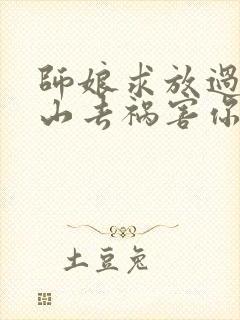 师娘求放過
山去祸害你
土豆兔